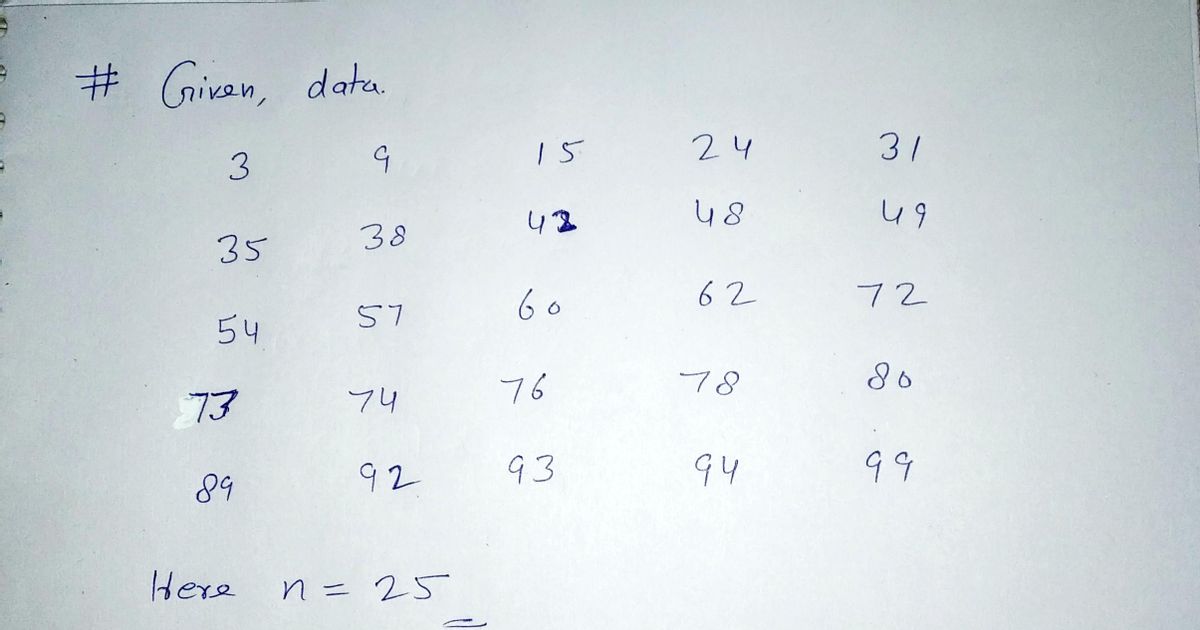 # Given, data.
3 9 15 24 31
35 38 42 48 49
54 57 60 62 72
73 74 76 78 80
89 92 93 94 99
Here n = 25